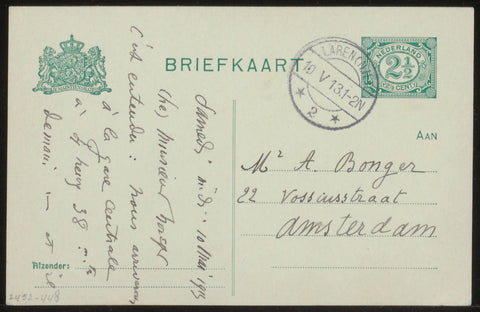 BRIEFKAART
NEDERLAND
2½
CENT
LAREN (N.H.)
10 V 13.1-2N
2
AAN
Mr A. Bonger
22 Vossiusstraat
Amsterdam
Samedi midi 10 Mai 1913
Cher Monsieur Bonger
C'est entendu: nous arriverons
à la gare centrale
à 4 heures 38
demain
Afzender:
2452-448